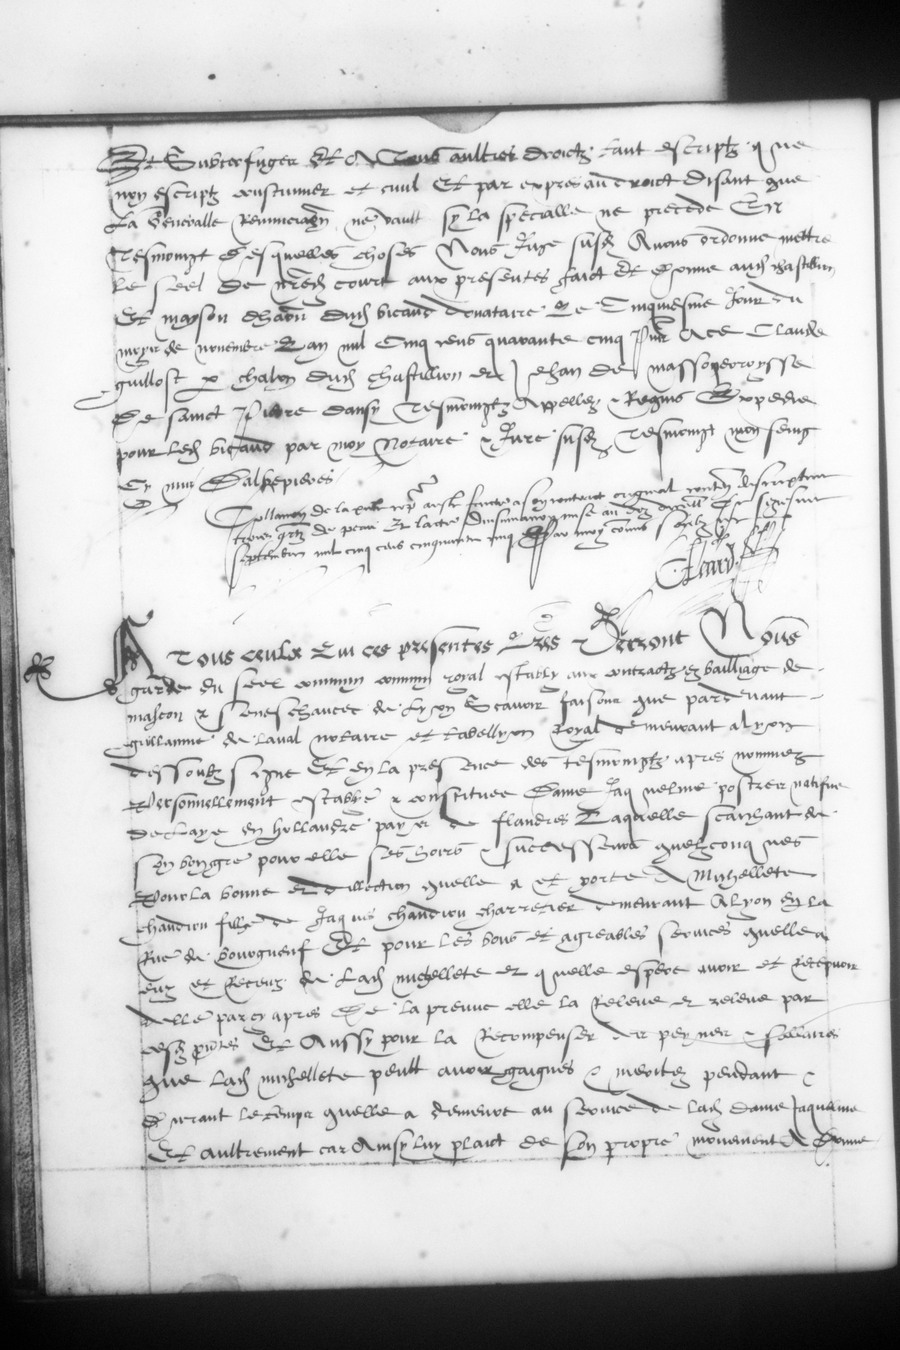 Et Subterfuger Et A Tous aultres droictz tant escriptz que
non escriptz coustumier et civil Et par expres au droict disant que
La Generalle Renunciation ne vault sy la specialle ne precede En
Tesmoingt Desquelles choses Nous Juge susd Avons ordonne mettre
Le seel de nred court aux presentes faict Et donne aud chastillion
Et mayson dud bicaud donataire Le Cinquiesme Jour du
moys de novembre Lan mil Cinq cens quarante cinq Pnt Ace Claude
guillost chalon dud chastillion et Jehan de
De sainct Pierre dansy Tesmoingtz Appellez Requis Expedie
pour led bicaud par moy Notaire Jure susd Tesmoingt mon seing
Cy mis Dalpepieres
Collation de la faicte a son original
trois de peau Et lacte dinsinuation mise au doz
septembre mil cinq cens cinquante cinq Par moy commis
A Tous ceulx Qui ces presentes Lres Verront Nous
garde du seel commun royal estably aux contractz en bailliage de
mascon & Seneschaucee de Lyon Scavoir faisons que pardevant
guillaume de laval notaire et tabellion Royal demeurant a lyon
dessoubz signe Et en la presence des tesmoingtz apres nommez
Personnellement establye & constituee Dame Jaquelme postrer natifve
De Laye en hollande pays de flandres Laquelle scaichant de
son bon gre pour elle ses hoirs & successeurs quelzconques
Pour la bonne et dillection quelle a et porte A Michellete
chandiou fille de Jaques chandiou charretier demeurant A Lyon En la
Rue de bourgneuf Et pour les bons et agreables services quelle a
euz et Receuz de Lad michellete et quelle espere avoir et Recepvoir
delle par cy apres De la preuve elle la Releve et releve par
cesd pntes Et Aussy pour la Recompenser des peynes & sallaires
que Lad michellete peult avoir gaignes & merites pendant &
durant le temps quelle a demeure au service de lad dame Jaquelme
Et aultrement car Ainsy luy plaict de son propre mouvement A Donne